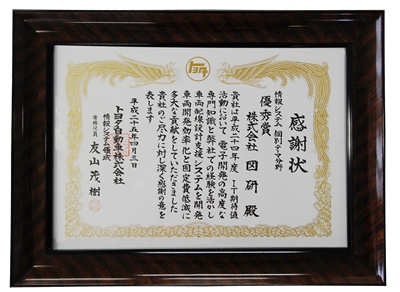 トヨタ
感謝状
情報システム 個別テーマ分野
優秀賞
株式会社 図研 殿
貴社は平成二十四年度 IT期待値
活動において電子開発の高度な
専門知識と弊社での経験を活かし
車両配線設計支援システムを開発
車両開発効率化と固定費低減に
多大な貢献をしていただきました
貴社のご尽力に対し深く感謝の意を
表します
平成二十五年四月三日
トヨタ自動車株式会社
情報システム領域
常務役員 友山茂樹